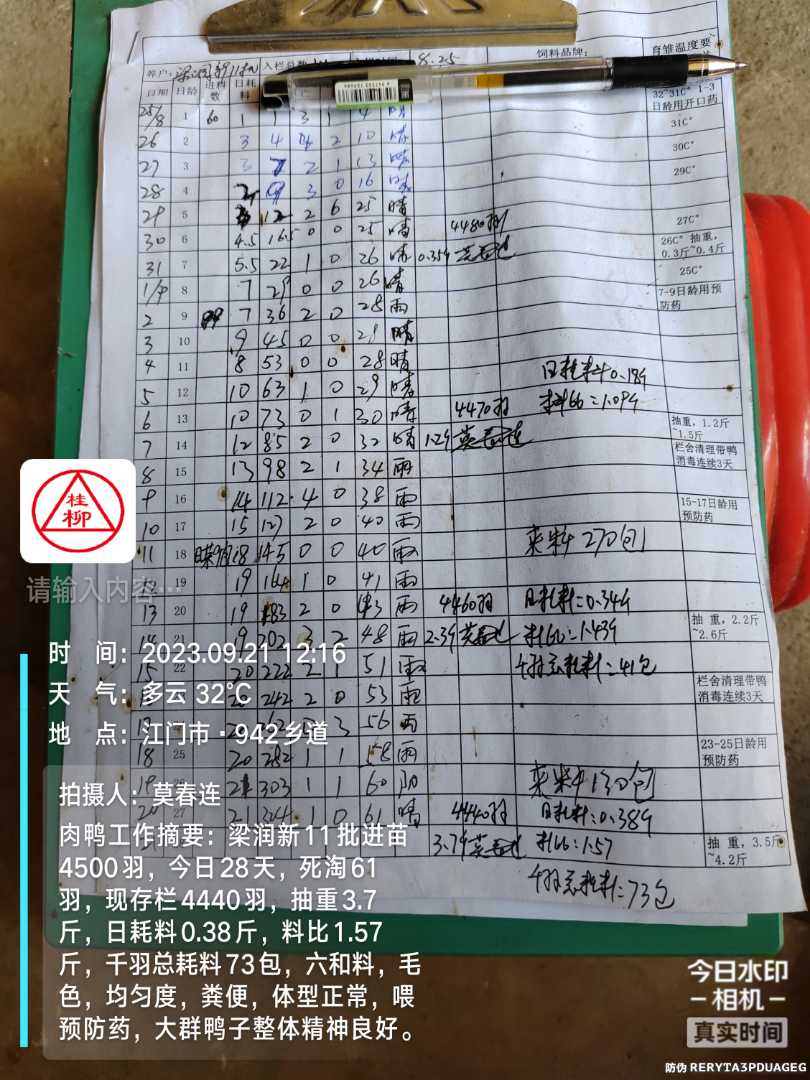 养户: 入栏总数 8.25 饲料品牌: 育雏温度要
日期 日龄 进料数 日耗料
32~31C° 1-3日龄用开口药
25/8 1 60 1
31C°
26 2 3 4 2 10
30C°
27 3 3 7 2 1 13
29C°
28 4 3 0 16
29 5 12 2 6 25 晴
27C°
30 6 4.5 16.5 0 0 25 晴 4480羽
26C° 抽重,
0.3斤~0.4斤
31 7 5.5 22 1 0 26 晴 0.35斤 莫春连
25C°
1/9 8 7 29 0 0 26 晴
7-9日龄用预防药
2 9 7 36 2 0 28 雨
3 10 9 45 0 0 29 晴
4 11 8 53 0 0 28 晴 日耗料=0.18斤
5 12 10 63 1 0 29 晴 料比=1.09斤
6 13 10 73 0 1 30 晴 4470羽
抽重, 1.2斤
~1.5斤
7 14 12 85 2 0 32 晴 1.2斤 莫春连
栏舍清理带鸭
消毒连续3天
8 15 13 98 2 1 34 雨
9 16 14 112 4 0 38 雨
15-17日龄用
预防药
10 17 15 127 2 0 40 雨
11 18 18 145 0 0 40 雨 来料270包
12 19 19 164 1 0 41 雨
13 20 19 183 2 0 43 雨 4460羽 日耗料=0.34斤
抽重, 2.2斤
~2.6斤
14 21 19 202 3 2 48 雨 2.3斤 莫春连 料比=1.43斤
15 22 20 222 2 1 51 千羽总耗料=41包
栏舍清理带鸭
消毒连续3天
242 2 0 53 雨
3 56 雨
23-25日龄用
预防药
18 25 20 282 1 1 58 雨
19 303 1 1 60 阴 来料130包
20 27 21 324 1 0 61 晴 4440羽 日耗料=0.38斤
3.7斤 莫春连 料比=1.57
抽重, 3.5斤
~4.2斤
千羽总耗料=73包
桂柳
请输入内容…
时 间: 2023.09.21 12:16
天 气: 多云 32℃
地 点: 江门市·942乡道
拍摄人: 莫春连
肉鸭工作摘要: 梁润新11批进苗
4500羽，今日28天，死淘61
羽，现存栏4440羽，抽重3.7
斤，日耗料0.38斤，料比1.57
斤，千羽总耗料73包，六和料，毛
色，均匀度，粪便，体型正常，喂
预防药，大群鸭子整体精神良好。
今日水印
相机
真实时间
防伪 RERYTA3PDUAGEG